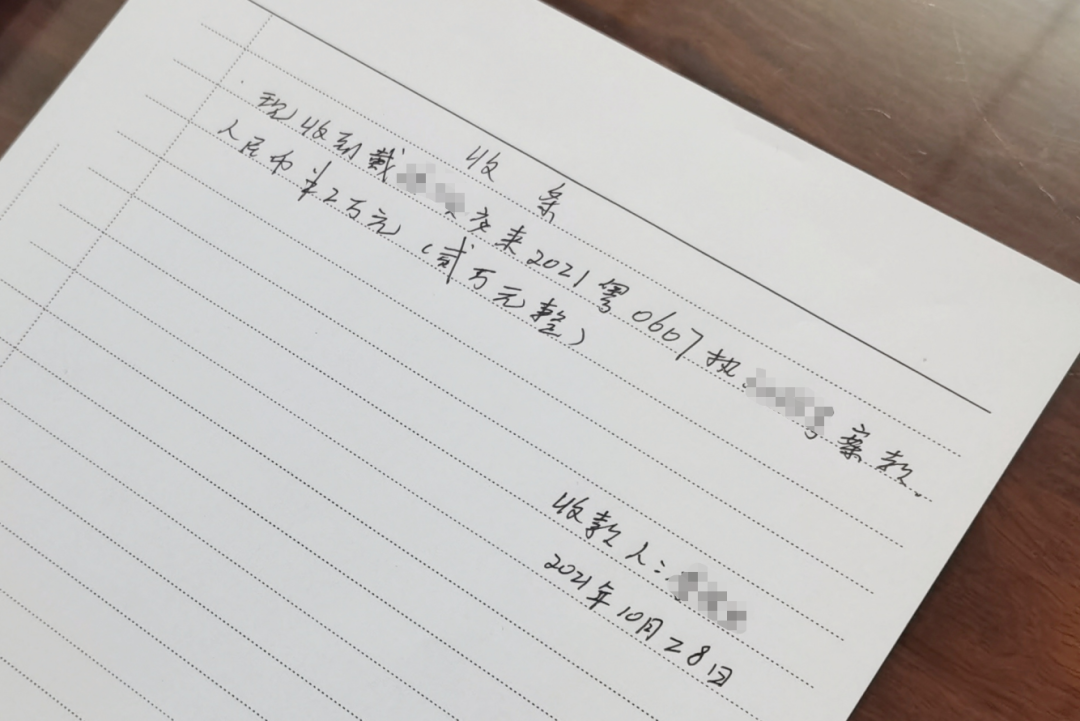 收条
现收到戴交来2021粤0607执号案款.
人民币¥2万元(贰万元整)
收款人:
2021年10月28日